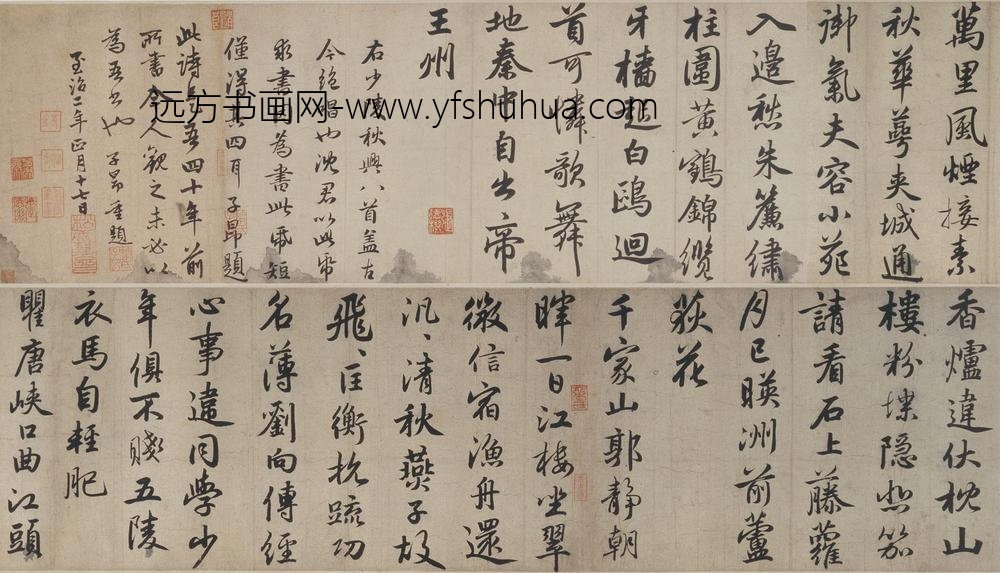 萬里風煙接素
秋華萼夹城通
御氣夫容小苑
入邊愁朱簾繡
柱圍黄鶴錦纜
牙檣起白鷗迴
首可憐歌舞
地秦中自古帝
王州
右少陵秋興八首盖古
今絶唱也沈君以此帋
求書為書此帋短
僅得其四耳 子昂題
此詩是吾四十年前
所書今人觀之未必以
為吾書也 子昂重題
至治二年正月十七日
远方书画网-www.yfshuhua.com
香爐違伏枕山
樓粉堞隐悲笳
請看石上藤蘿
月已暎洲前蘆
荻花
千家山郭靜朝
暉一日江樓坐翠
微信宿漁舟還
汎〻清秋燕子故
飛〻匡衡抗疏功
名薄劉向傳經
心事違同學少
年俱不賤五陵
衣馬自輕肥
瞿唐峽口曲江頭